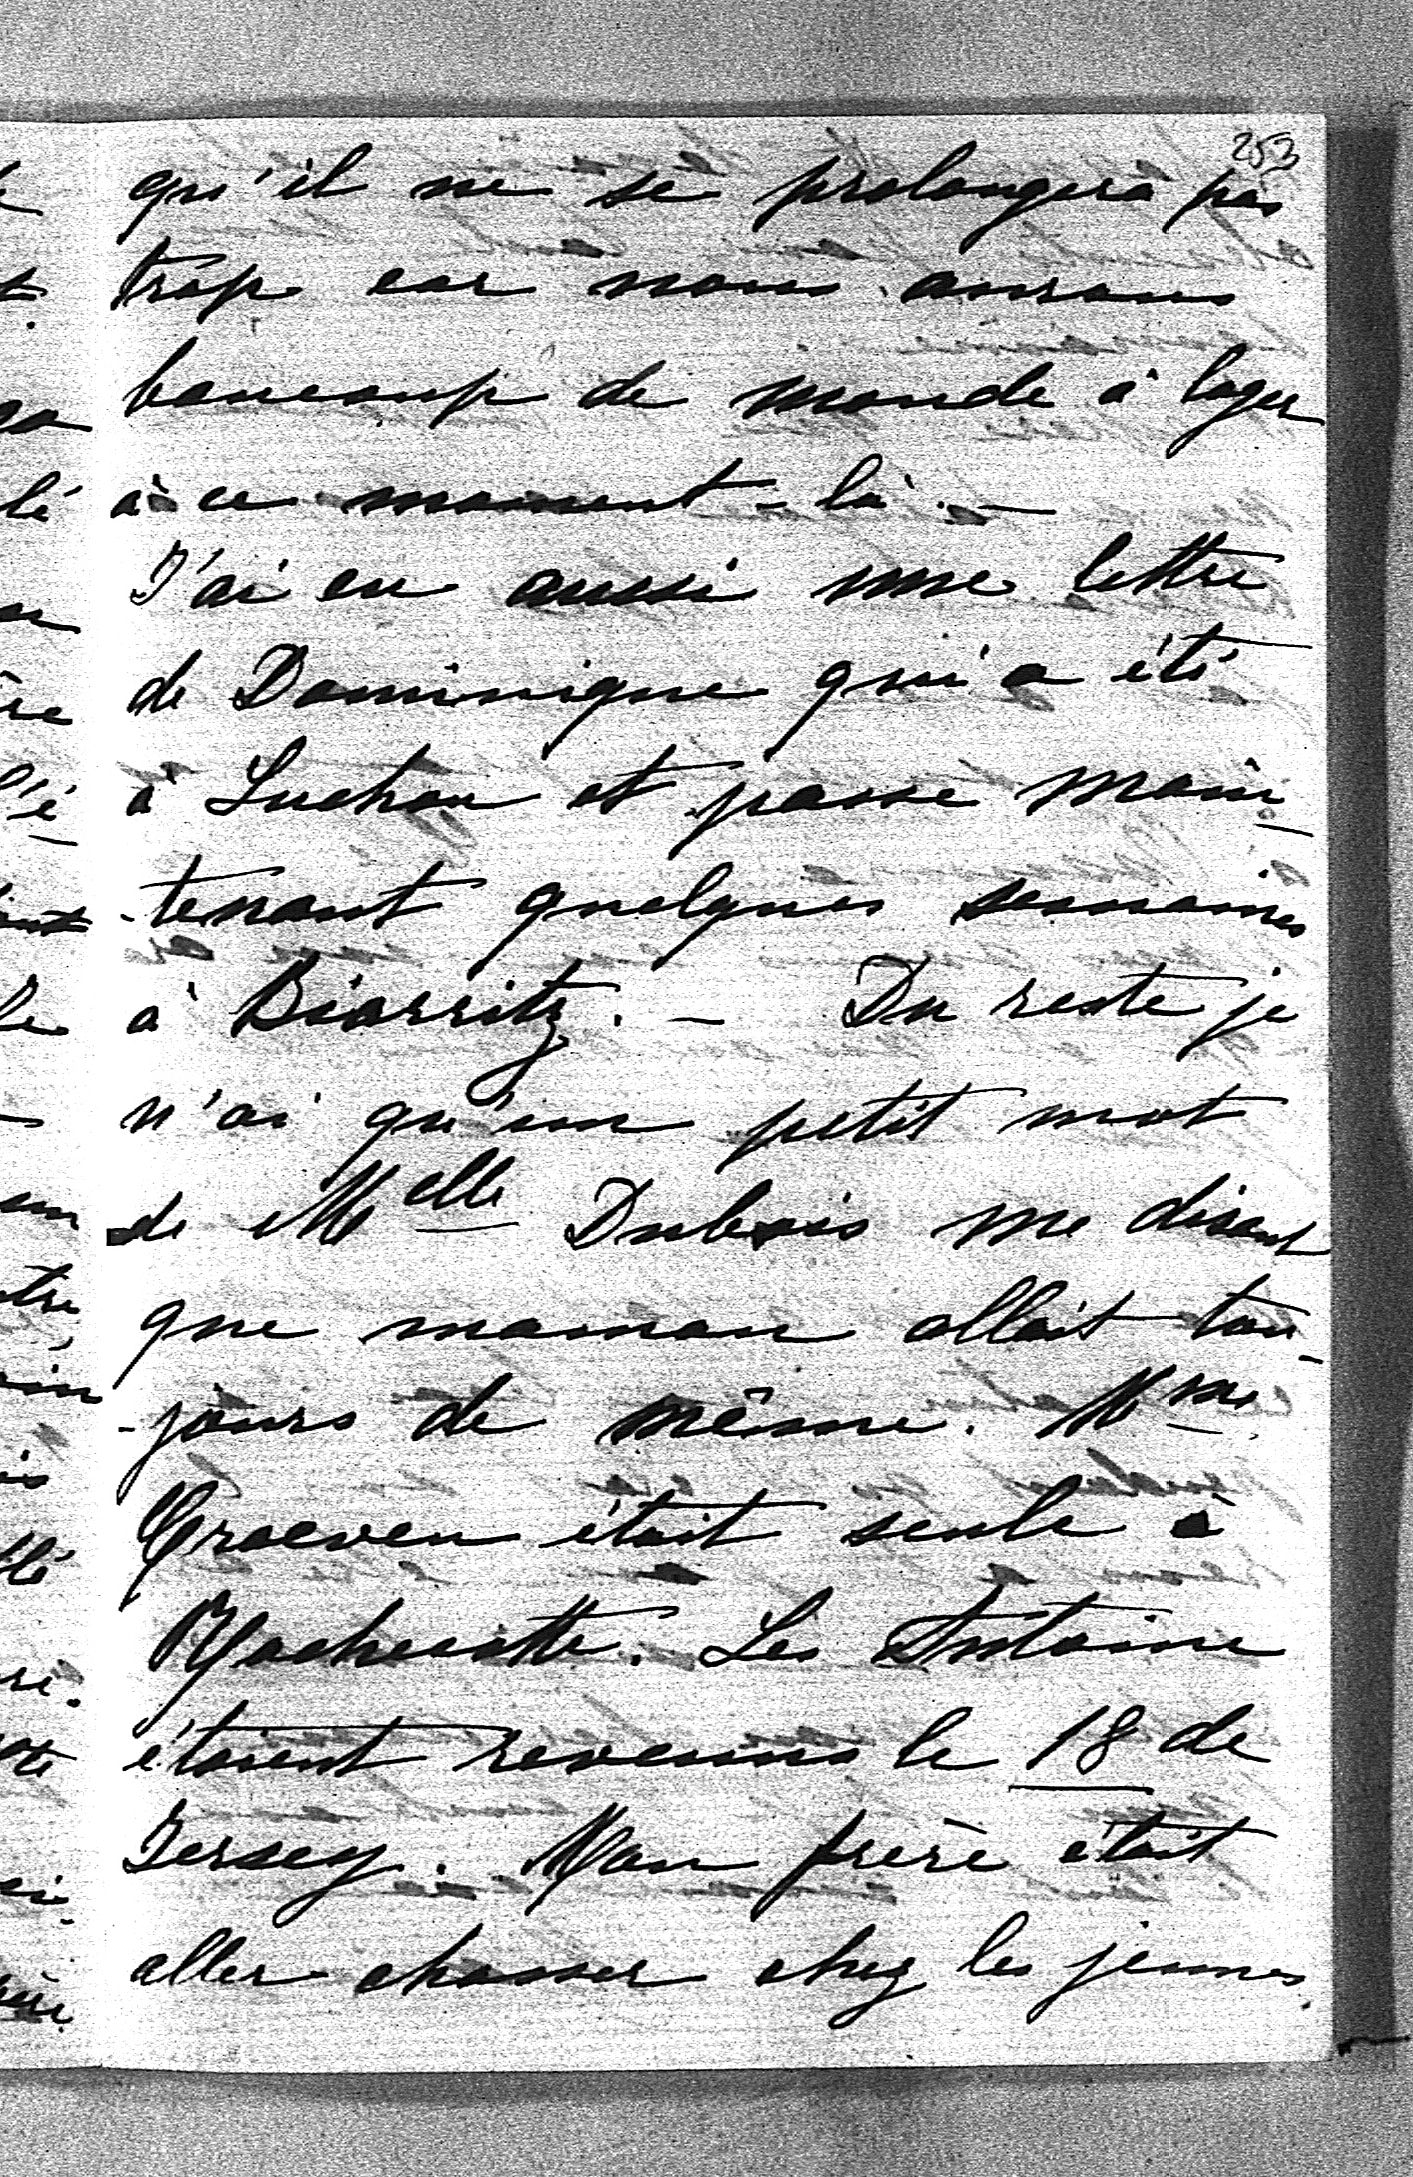 253
qu'il ne se prolongera pas
trop car nous aurons
beaucoup de monde à loger
à ce moment-là. —
J'ai eu aussi une lettre
de Dominique qui a été
à Luchon et passe main-
-tenant quelques semaines
à Biarritz. — Du reste je
n'ai qu'un petit mot
de Melle Dubois me disant
que maman allait tou-
-jours de même. Mme
était seule à
Les Antoine
étaient revenus le 18 de
Jersey. Mon frère était
aller chasser chez les jeunes